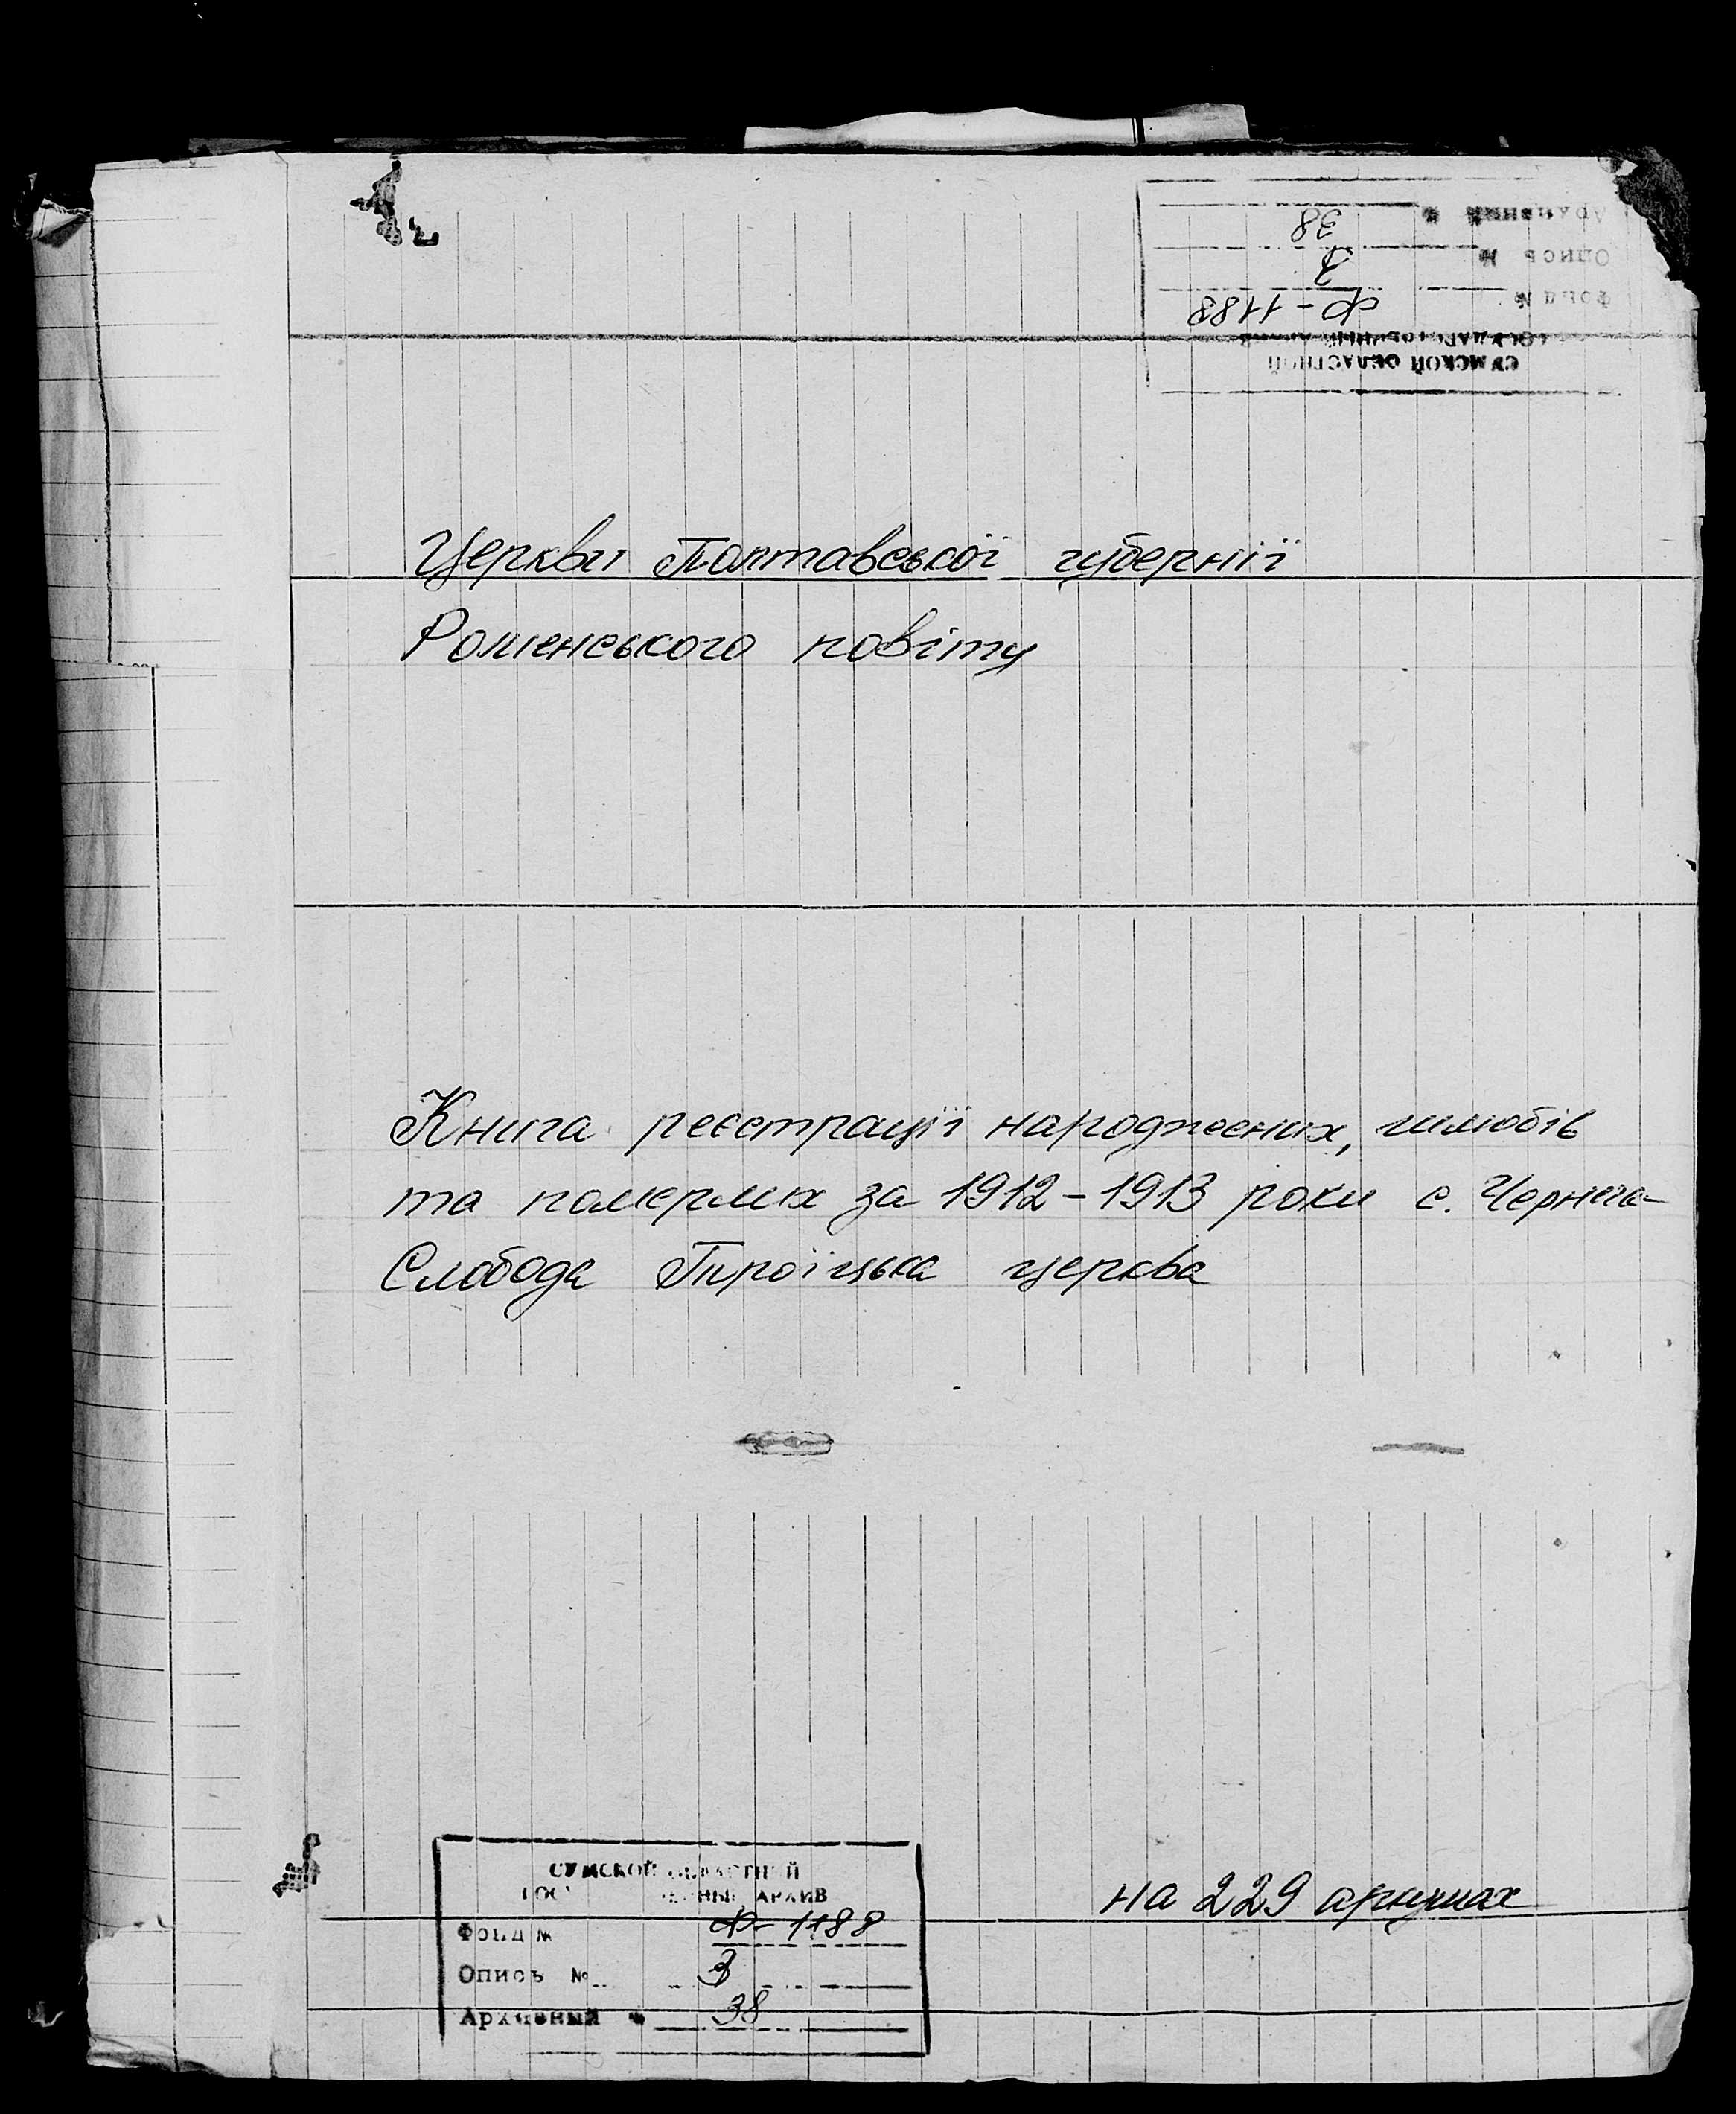 Архивный №
38
Опись №
3
Фонд №
Ф-1188
ГОСУДАРСТВЕННЫЙ АРХИВ
СУМСКОЙ ОБЛАСТНОЙ
Церкви Полтавської губернії
Роменського повіту
Книга реєстрації народжених, шлюбів
та померлих за 1912-1913 роки с. Чернеча-
Слобода Троїцька церква
на 229 аркушах
СУМСКОЙ ОБЛАСТНОЙ
АРХИВ
Фонд № Ф-1188
Опись № 3
Архивный № 38